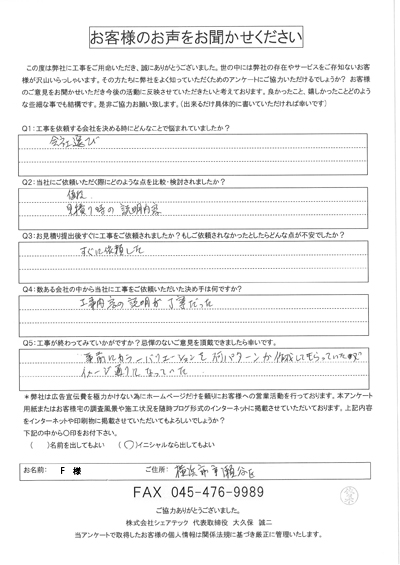 お客様のお声をお聞かせください
この度は弊社に工事をご用命いただき、誠にありがとうございました。世の中には弊社の存在やサービスをご存知ないお客
様が沢山いらっしゃいます。その方たちに弊社をよく知っていただくためのアンケートにご協力いただけるでしょうか？ お客様
のご意見をお聞かせいただき今後の活動に反映させていただきたいと考えております。良かったこと、嬉しかったことどのよう
な些細な事でも結構です。是非ご協力お願い致します。（出来るだけ具体的に書いていただければ幸いです）
Q1：工事を依頼する会社を決める時にどんなことで悩まれていましたか？
会社選び
Q2：当社にご依頼いただく際にどのような点を比較・検討されましたか？
価格
見積り時の説明内容
Q3：お見積り提出後すぐに工事をご依頼されましたか？もしご依頼されなかったとしたらどんな点が不安でしたか？
すぐに依頼した
Q4：数ある会社の中から当社に工事をご依頼いただいた決め手は何ですか？
工事内容の説明が丁寧だった
Q5：工事が終わってみていかがですか？忌憚のないご意見を頂戴できましたら幸いです。
事前にカラーバリエーションを何パターンか作成してもらっていた
イメージ通りになっていた
＊弊社は広告宣伝費を極力かけない為にホームページだけを頼りにお客様への営業活動を行っております。本アンケート
用紙またはお客様宅の調査風景や施工状況を随時ブログ形式のインターネットに掲載させていただいております。上記内容
をインターネットや印刷物に掲載させていただいてもよろしいでしょうか？
下記の中から〇印をお付下さい。
（ ）名前を出してもよい （〇）イニシャルなら出してもよい
お名前： F 様 ご住所： 横浜市瀬谷区
FAX 045-476-9989
ご協力ありがとうございました。
株式会社シェアテック 代表取締役 大久保 誠二
当アンケートで取得したお客様の個人情報は関係法規に基づき厳正に管理いたします。